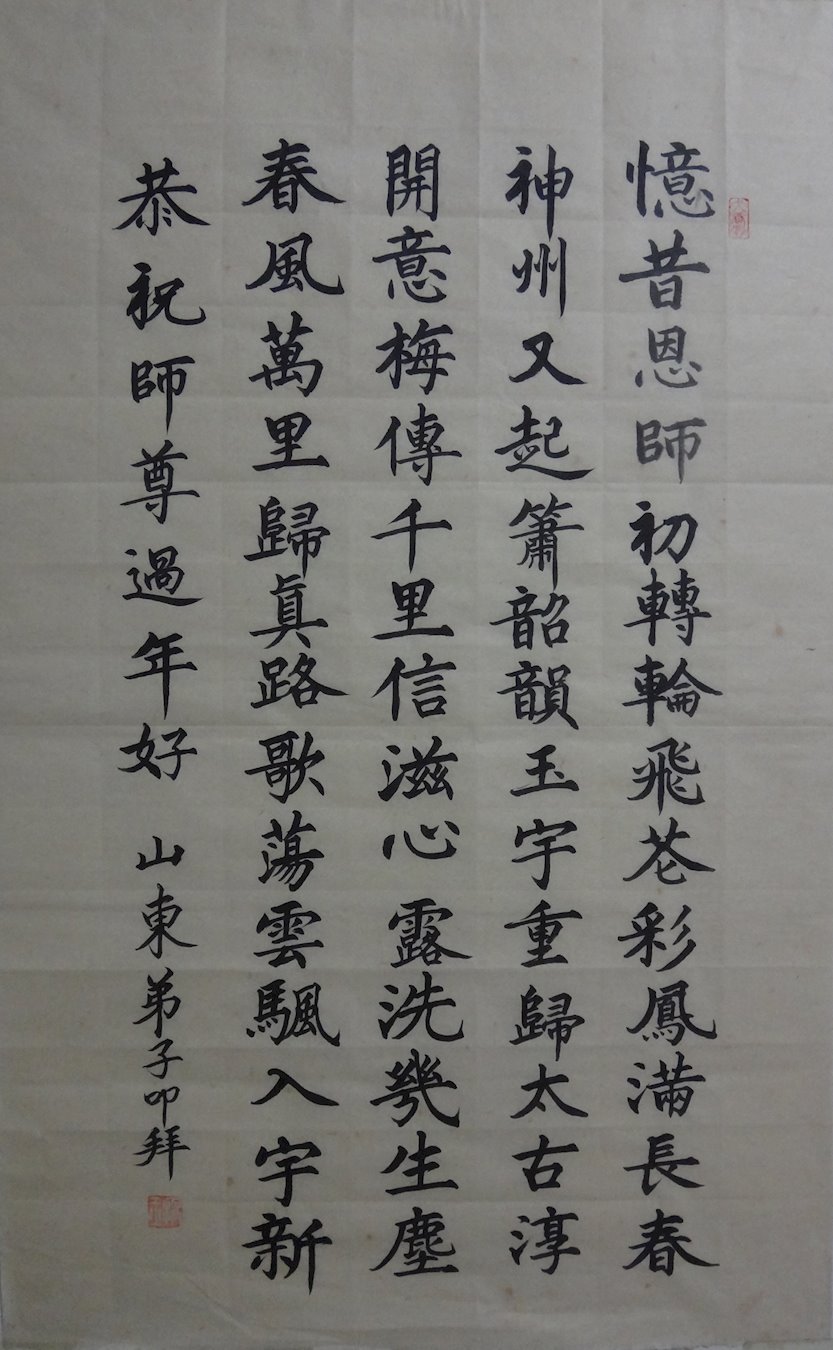 憶昔恩師初轉輪飛花彩鳳滿長春
神州又起簫韶韻玉宇重歸太古淳
開意梅傳千里信滋心露洗幾生塵
春風萬里歸真路歌蕩雲飄入宇新
恭祝師尊過年好 山東弟子叩拜